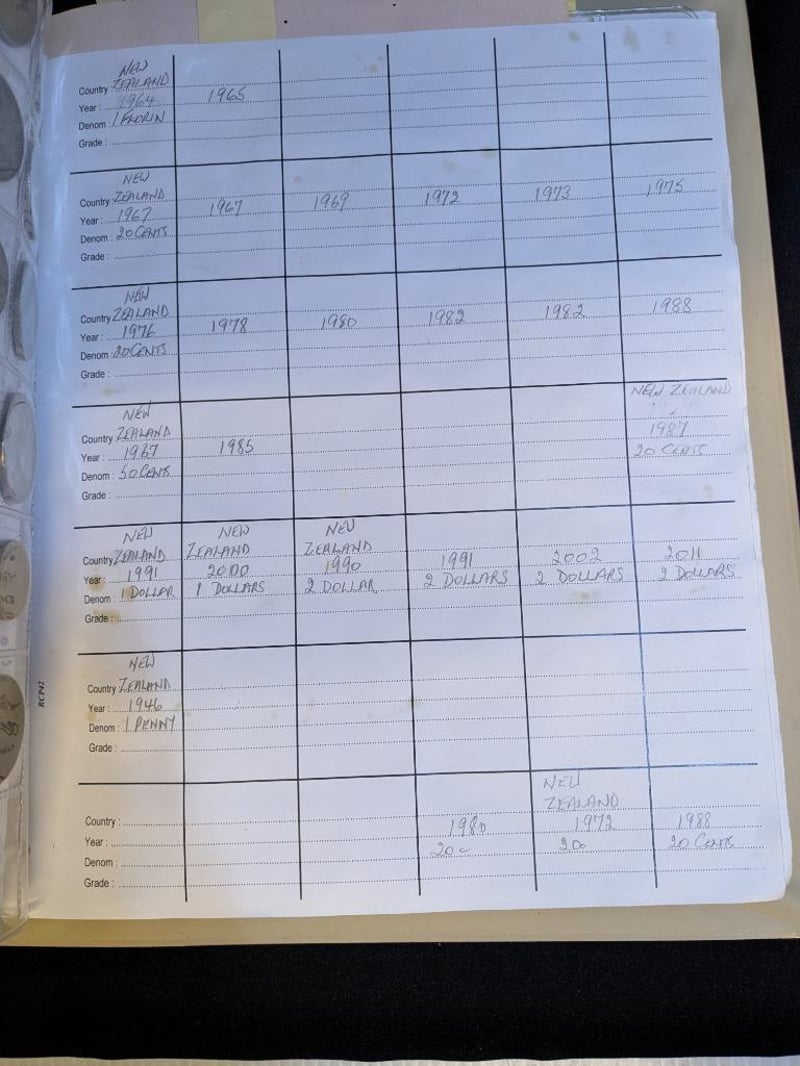 NEW
Country ZEALAND
Year : 1964 1965
Denom : 1 FLORIN
Grade :
NEW
Country ZEALAND
Year : 1967 1967 1969 1972 1973 1975
Denom : 20 CENTS
Grade :
NEW
Country ZEALAND
Year : 1976 1978 1980 1982 1982 1988
Denom 20 CENTS
Grade :
NEW NEW ZEALAND
Country ZEALAND
Year : 1967 1985 1987
Denom : 50 CENTS 20 CENTS
Grade :
NEW NEW NEW
Country ZEALAND ZEALAND ZEALAND
Year : 1991 2000 1990 1991 2002 2011
Denom : 1 DOLLAR 1 DOLLARS 2 DOLLAR 2 DOLLARS 2 DOLLARS 2 DOLLARS
Grade :
RCP42
NEW
Country ZEALAND
Year : 1946
Denom : 1 PENNY
Grade :
NEW
ZEALAND
Country : 1980 1972 1988
Year : 20c 20c 20 CENTS
Denom :
Grade :